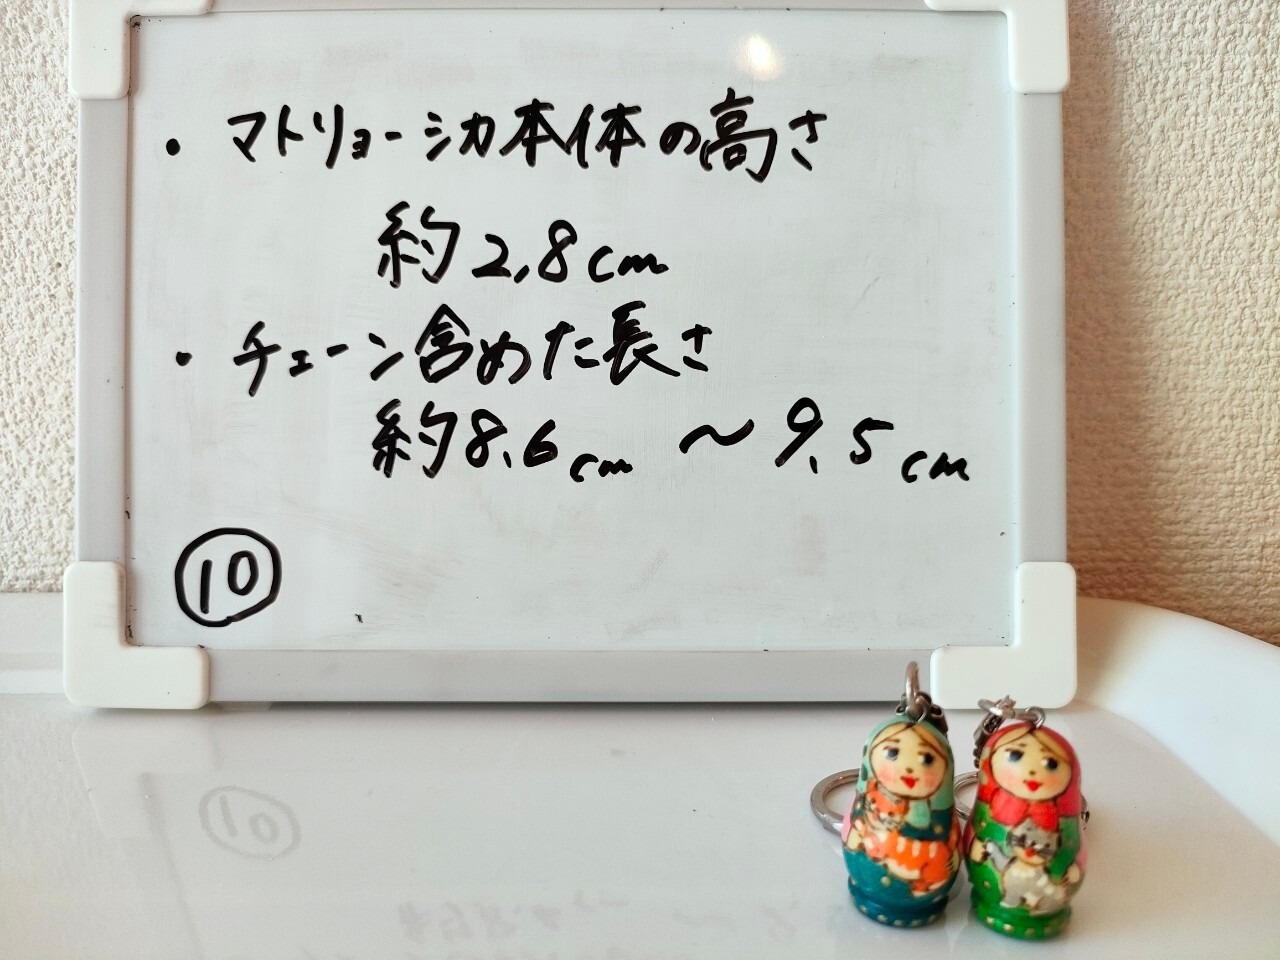 ・マトリョーシカ本体の高さ
約2.8cm
・チェーン含めた長さ
約8.6cm ～ 9.5cm
⑩